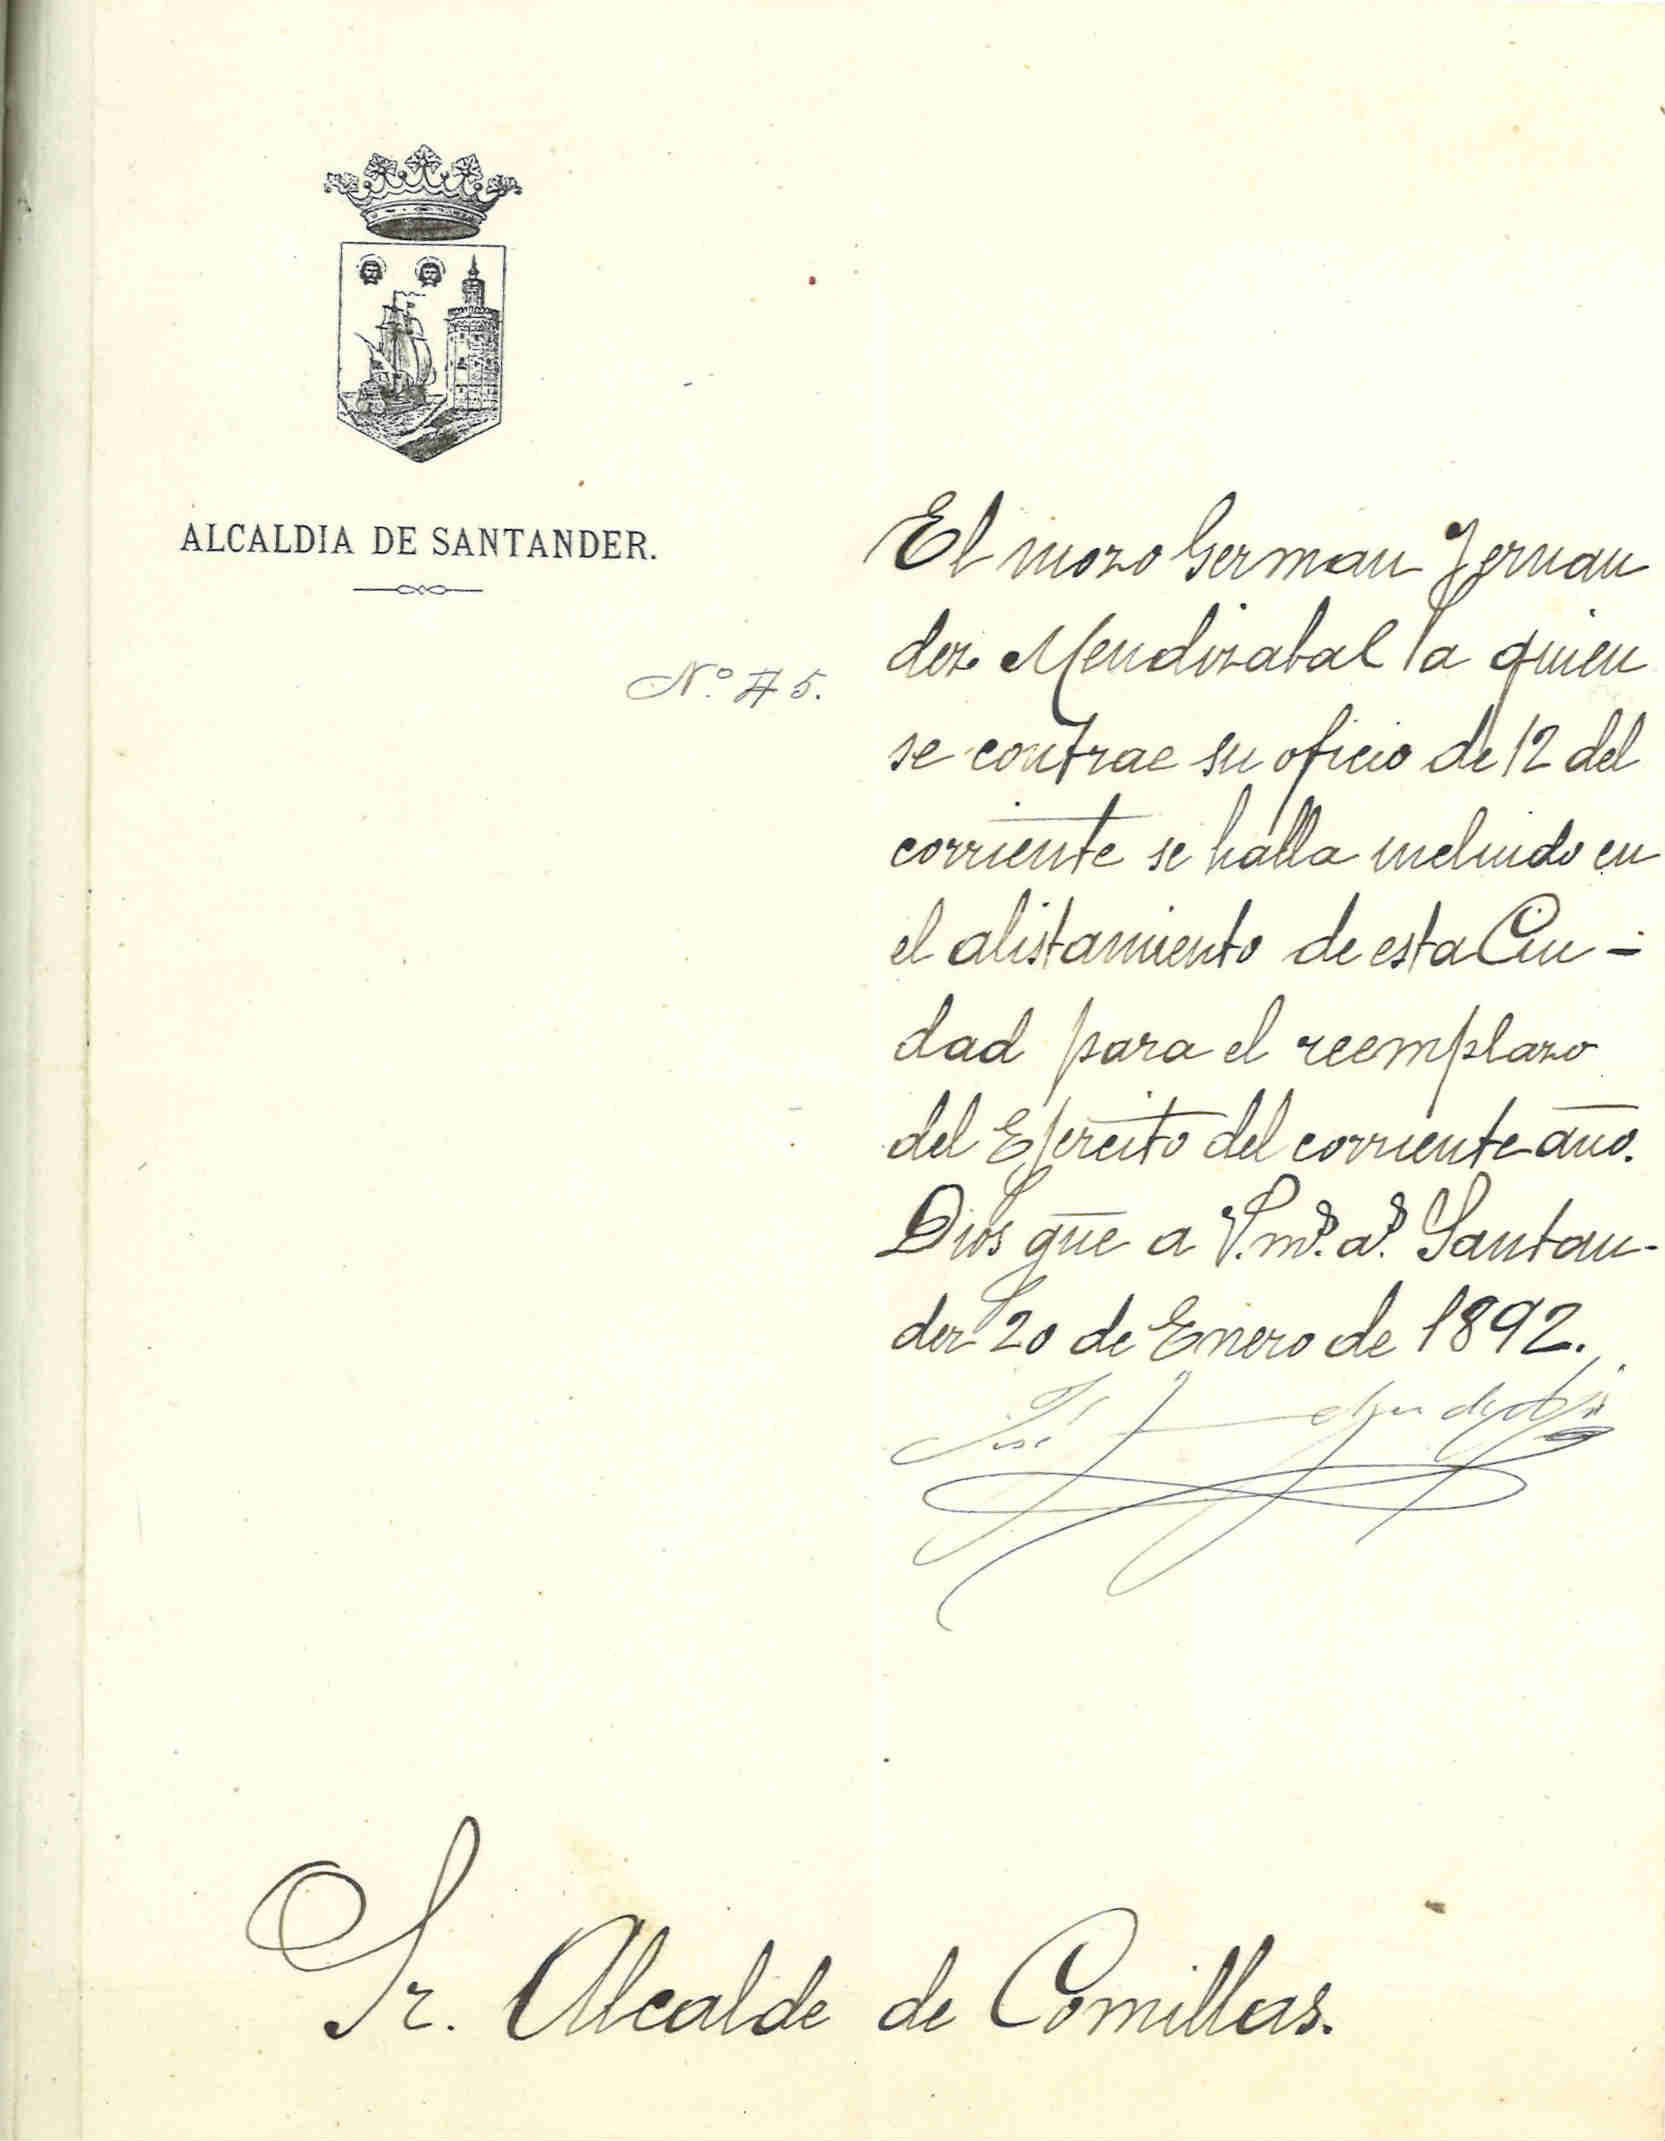 ALCALDIA DE SANTANDER.
Nº 75.
El mozo German Fernan
dez Mendizabal a quien
se contrae su oficio de 12 del
corriente se halla incluido en
el alistamiento de esta Ciu-
dad para el reemplazo
del Ejercito del corriente año.
Dios gue a V. ms. as. Santan-
der 20 de Enero de 1892.
José
Sr. Alcalde de Comillas.